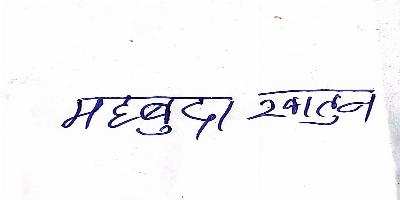 महबुदा खातुन